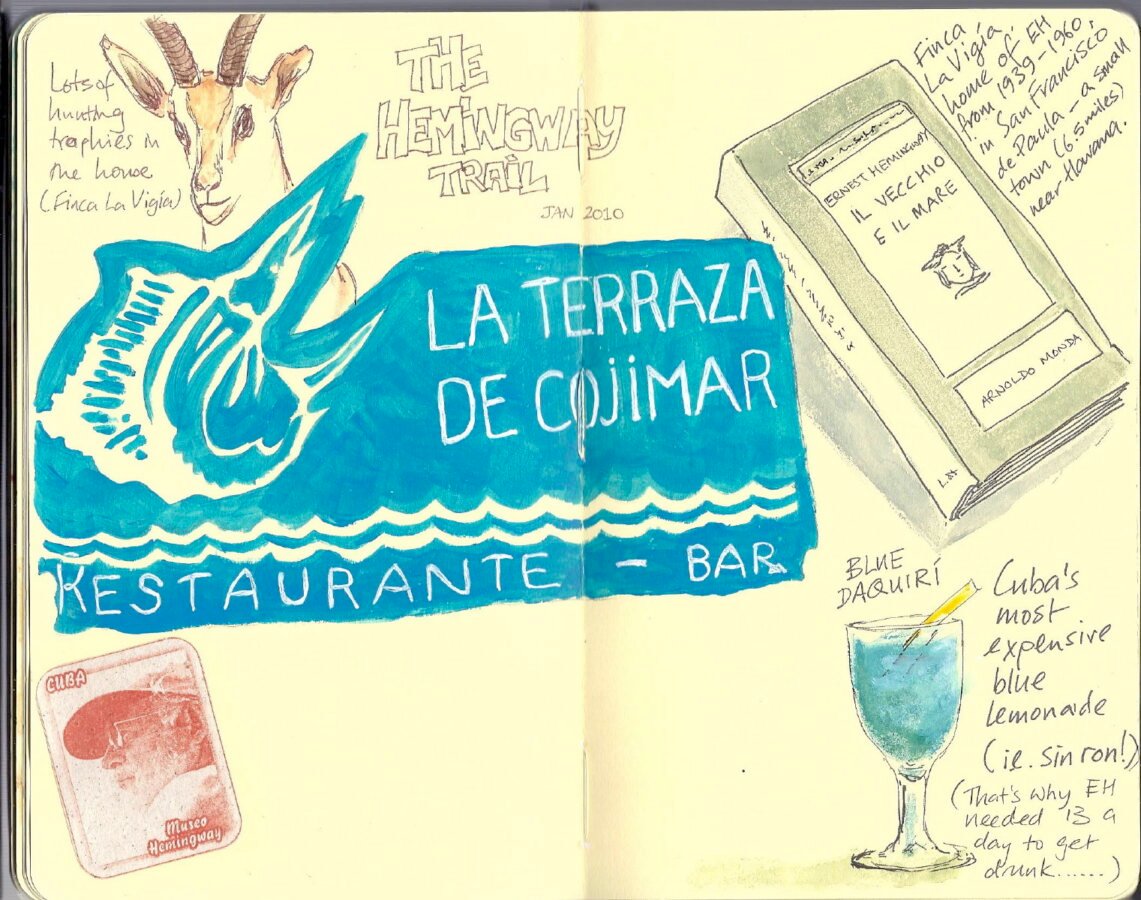 Lots of
hunting
trophies in
the house
(Finca La Vigía)
THE
HEMINGWAY
TRAIL
JAN 2010
LA TERRAZA
DE COJIMAR
RESTAURANTE - BAR
CUBA
Museo
Hemingway
Finca
La Vigía,
home of EH
from 1939-1960,
in San Francisco
de Paula - a small
town (6.5 miles)
near Havana.
ERNEST HEMINGWAY
IL VECCHIO
E IL MARE
ARNOLDO MONDA
BLUE
DAQUIRÍ
Cuba's
most
expensive
blue
lemonade
(ie. sin ron!)
(That's why EH
needed 13 a
day to get
drunk......)